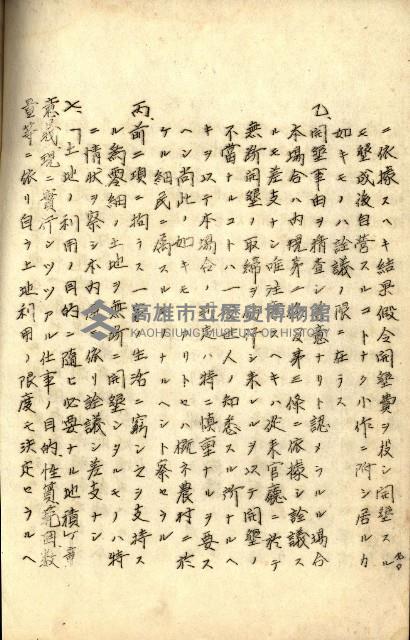 ニ依據スヘキ結果假令開墾費ヲ投シ開墾スル
モ墾成後自營スルコトナク小作ニ附シ居ルカ
如キモノハ詮議ノ限ニ在ラス
乙、開墾事由ヲ精査シ意ナリト認メラルル場合
本場合ハ内規第二條及第三條ニ依據シ詮議ス
ルモ差支ナシ唯注意スヘキハ從來官廳ニ於テ
無斷開墾ノ取締ヲ シ來レルヲ以テ開墾ノ
不當ナルコトハ一 人ノ知悉スル所ナルヘ
キヲ以テ本場合ノ ハ特ニ慎重ナルヲ要ス
ヘシ尚此ノ如キモ リトセハ概ネ農村ニ於
ケル細民ニ屬スル ナルヘシト察セラル
丙、前二項ニ拘ラス一 生活ニ窮シ之ヲ支持ス
ル為零細ノ土地ヲ無斷ニ開墾シタルモノハ特
ニ情状ヲ察シ本内 依リ詮議シ差支ナシ
七、「土地ノ利用ノ目的ニ隨ヒ必要ナル地積」ノ
意義現ニ實行シツツアル仕事ノ目的性質 因數
量等ニ依リ自ラ土地利用ノ限度モ決定セラルヘ
高雄市立歷史博物館
KAOHSIUNG MUSEUM OF HISTORY